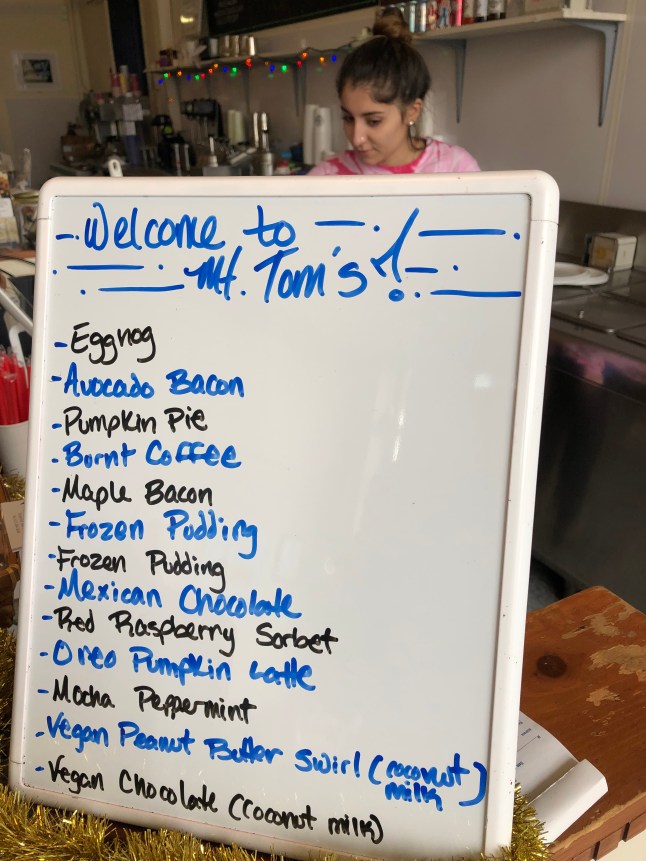 Welcome to
Mt. Tom's!
-Eggnog
-Avocado Bacon
-Pumpkin Pie
-Burnt Coffee
-Maple Bacon
-Frozen Pudding
-Frozen Pudding
-Mexican Chocolate
-Red Raspberry Sorbet
-Oreo Pumpkin Latte
-Mocha Peppermint
-Vegan Peanut Butter Swirl (coconut
milk)
-Vegan Chocolate (coconut milk)